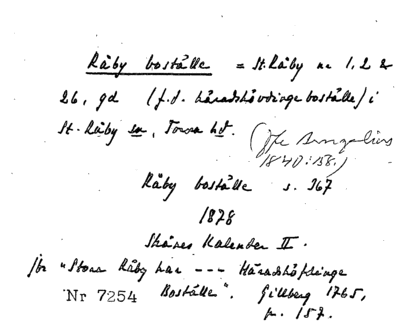 Råby boställe = St. Råby nr 1, 2 &
26, gd (f.d. häradshövdingeboställe) i
St. Råby sn, Torna hd.
(Jfr
1840: 158.)
Råby boställe s. 367
1878
Skånes Kalender II.
jfr "Stora Råby har --- Häradshöfdinge
Nr 7254 Boställe". Gillberg 1765,
p. 157.